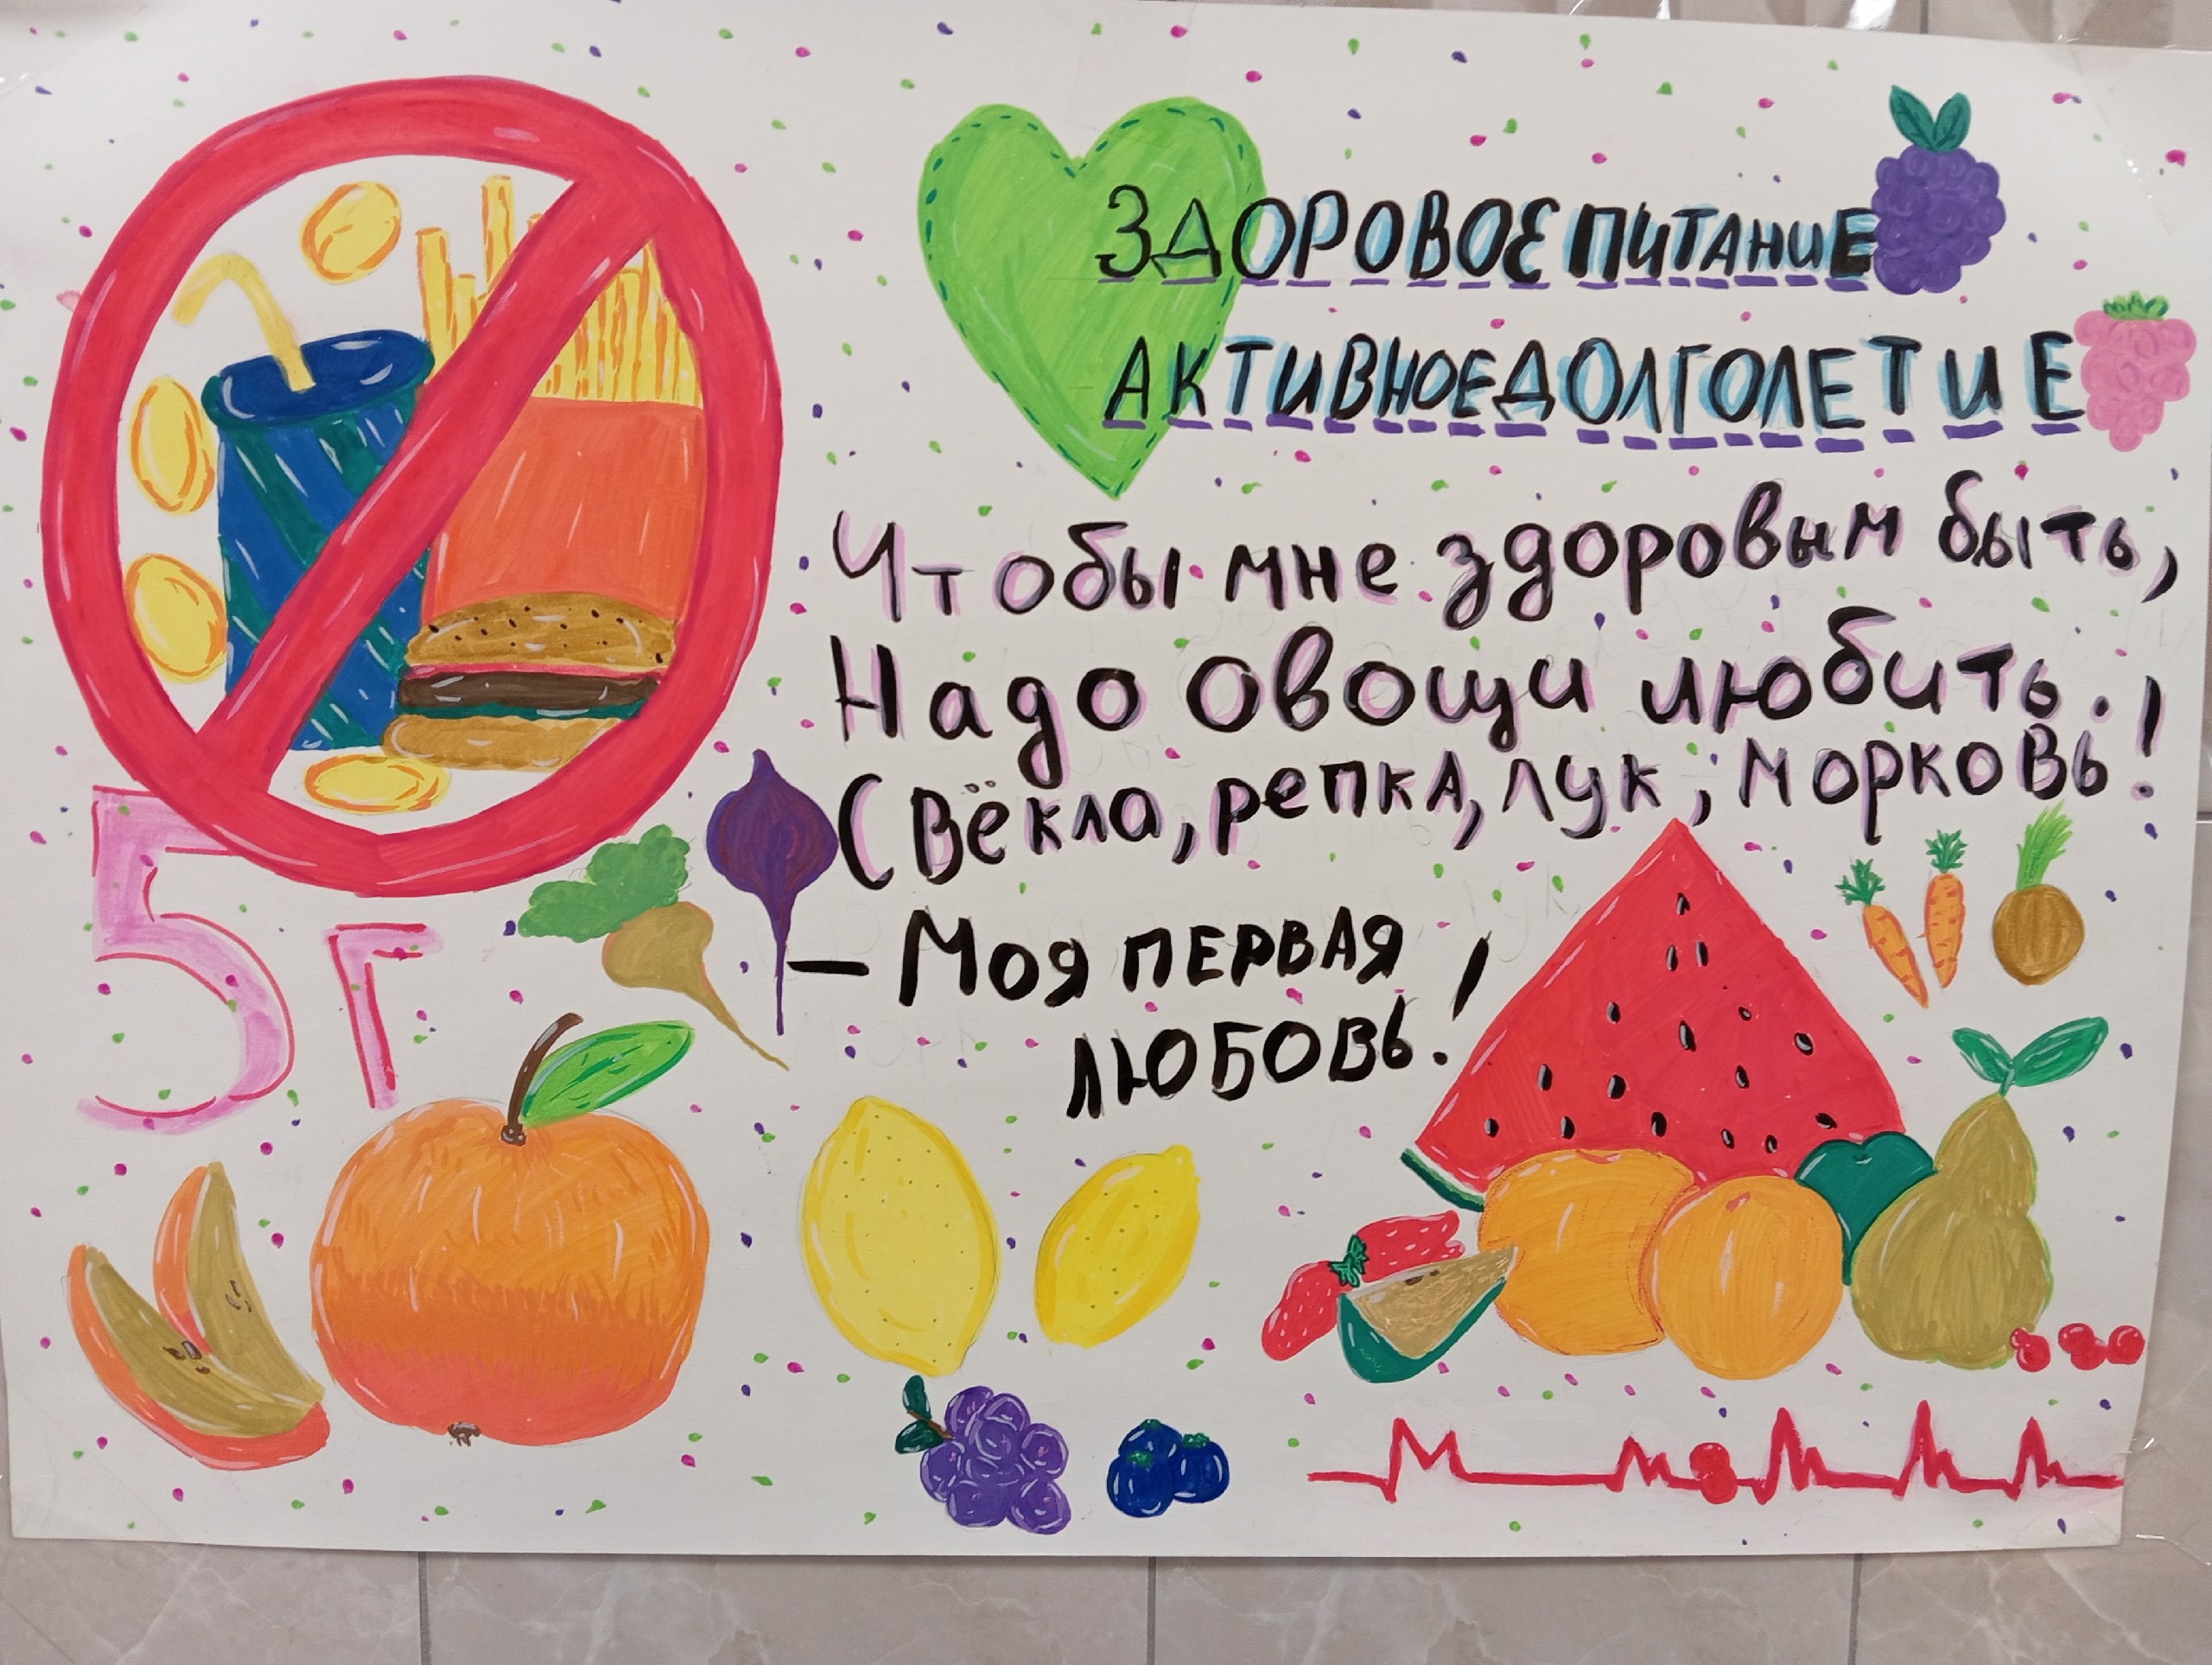 ЗДОРОВОЕ ПИТАНИЕ
АКТИВНОЕ ДОЛГОЛЕТИЕ
Чтобы мне здоровым быть,
Надо овощи любить.!
Свёкла, репка, лук, морковь!
5г
– Моя ПЕРВАЯ
ЛЮБОВЬ!